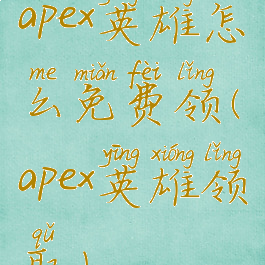 apex英雄怎
me miǎn fèi lǐng
么免费领(
yīng xióng lǐng
apex英雄领
qǔ
取)